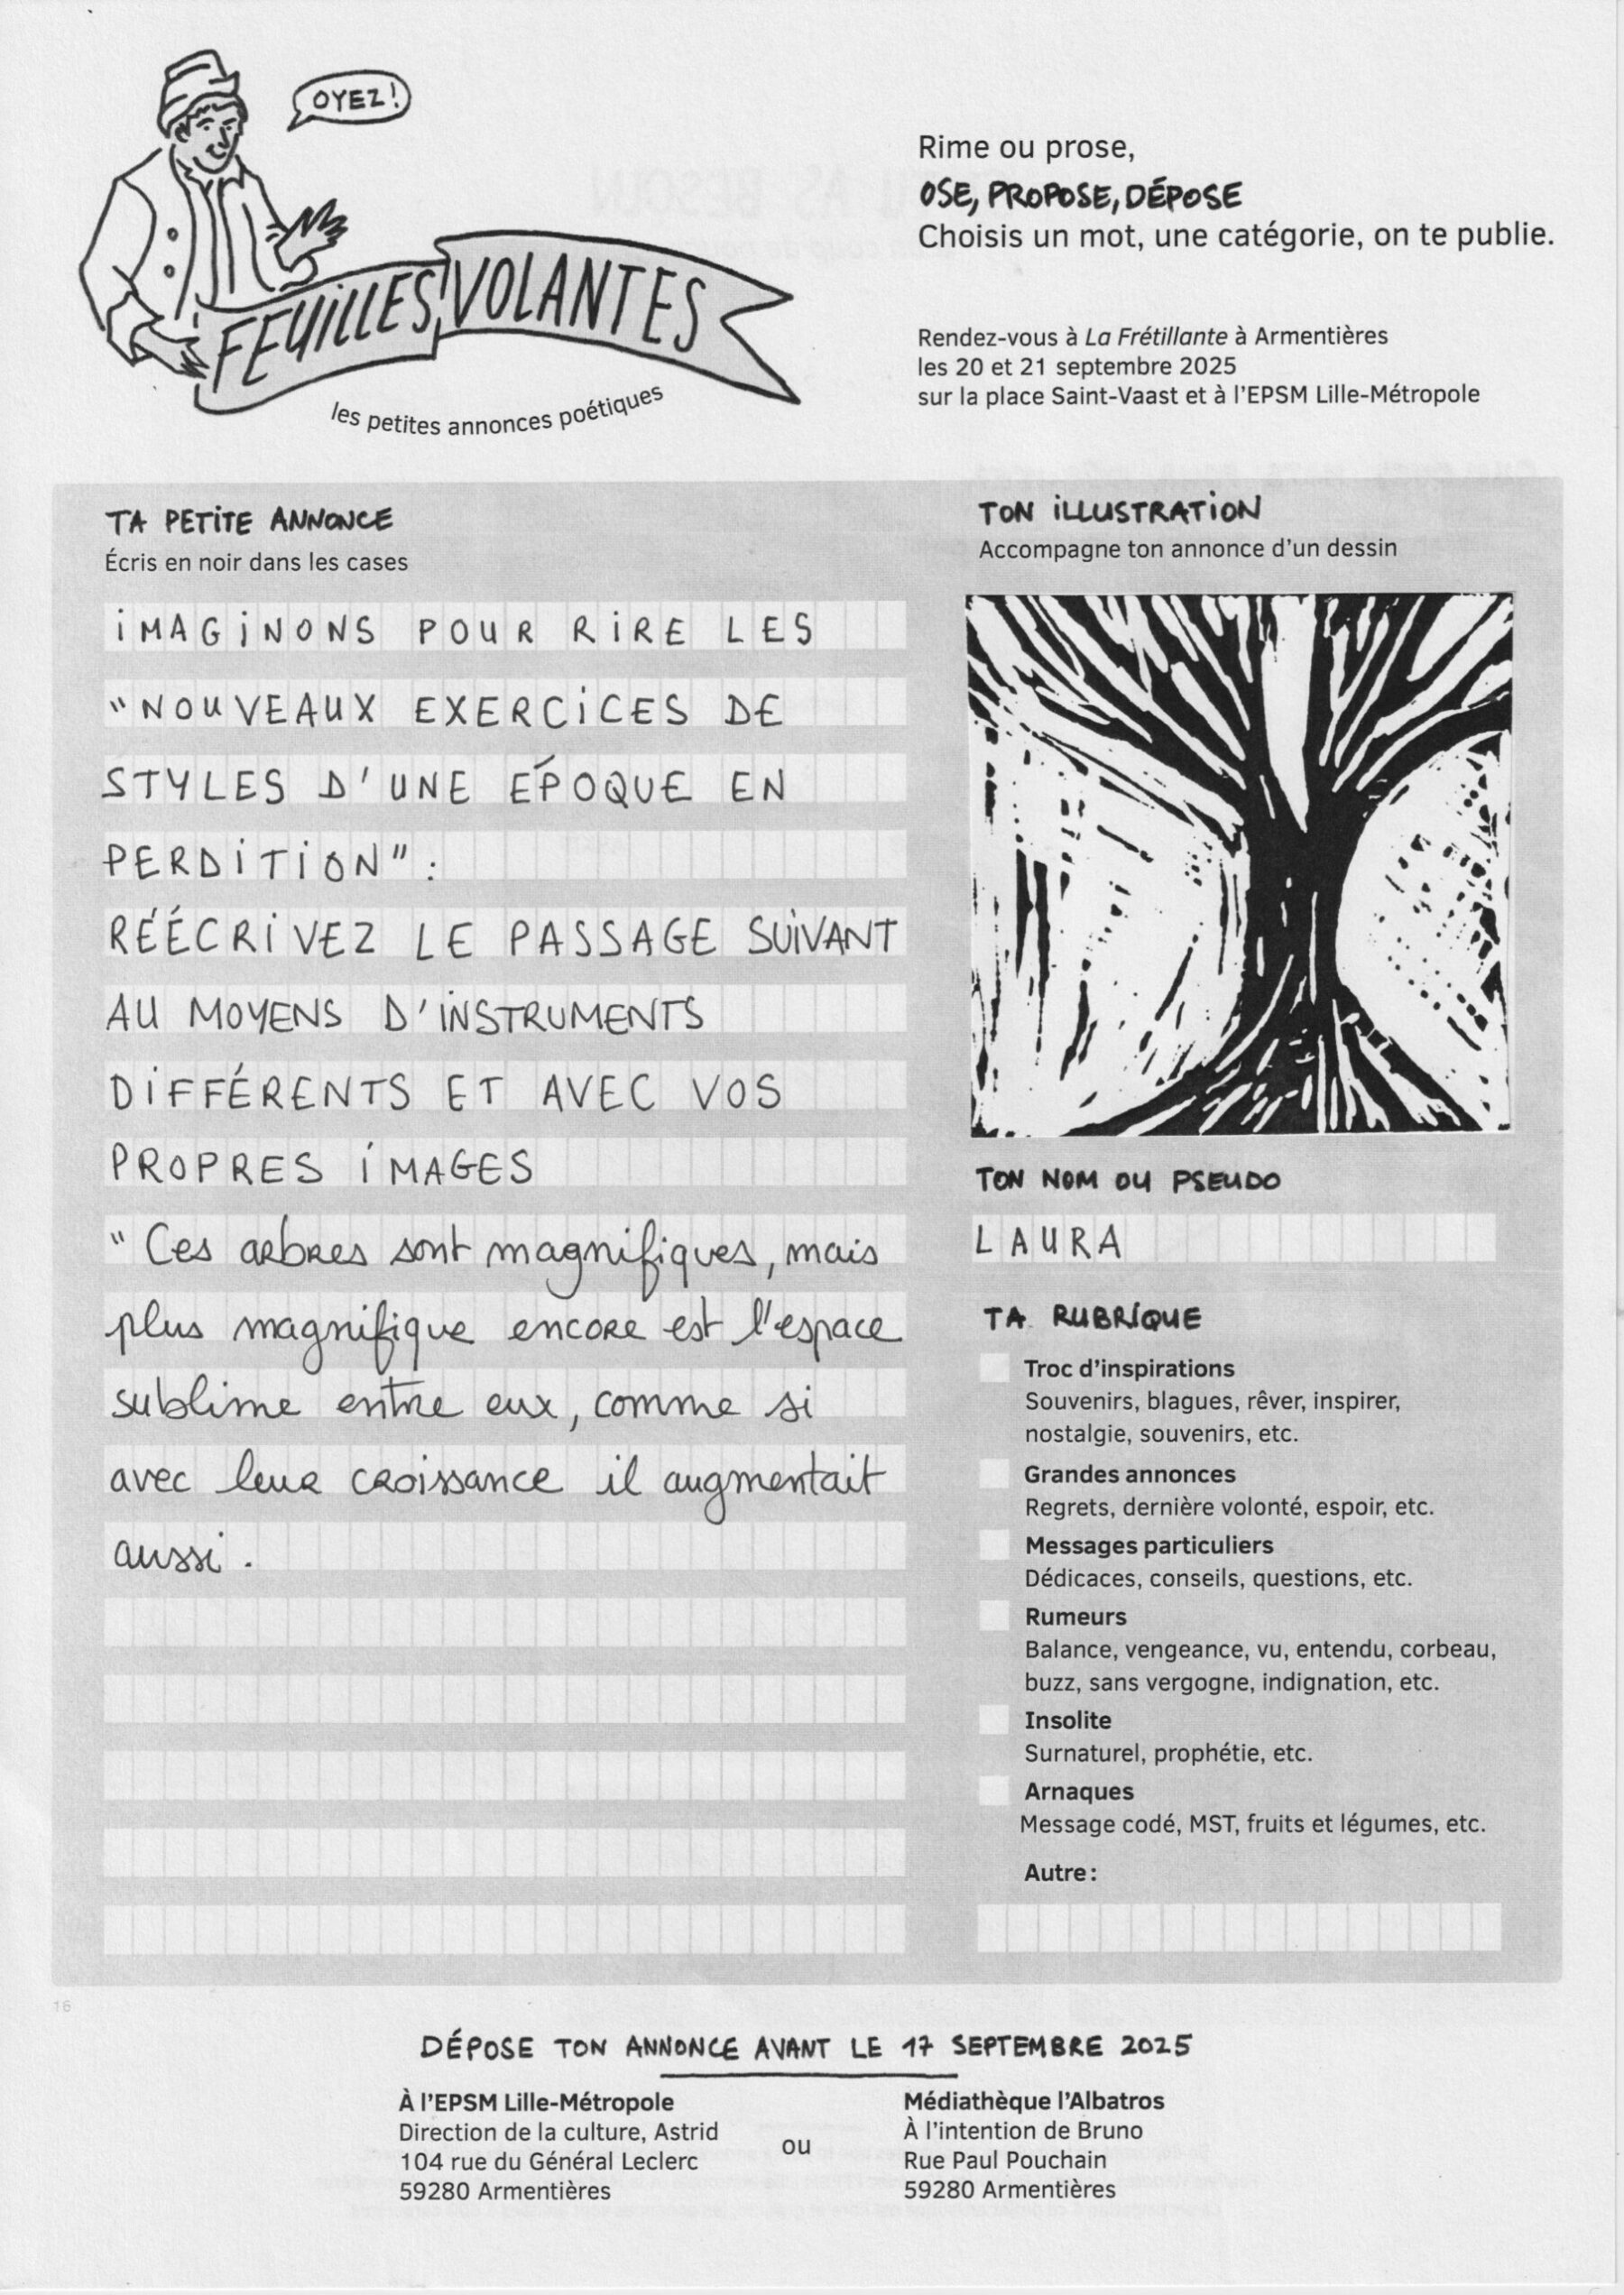 OYEZ!
FEUILLES VOLANTES
les petites annonces poétiques
Rime ou prose,
OSE, PROPOSE, DÉPOSE
Choisis un mot, une catégorie, on te publie.
Rendez-vous à La Frétillante à Armentières
les 20 et 21 septembre 2025
sur la place Saint-Vaast et à l'EPSM Lille-Métropole
TA PETITE ANNONCE
Écris en noir dans les cases
IMAGINONS POUR RIRE LES
"NOUVEAUX EXERCICES DE
STYLES D'UNE ÉPOQUE EN
PERDITION" :
RÉÉCRIVEZ LE PASSAGE SUIVANT
AU MOYENS D'INSTRUMENTS
DIFFÉRENTS ET AVEC VOS
PROPRES IMAGES
" Ces arbres sont magnifiques, mais
plus magnifique encore est l'espace
sublime entre eux, comme si
avec leur croissance il augmentait
aussi.
TON ILLUSTRATION
Accompagne ton annonce d'un dessin
TON NOM OU PSEUDO
LAURA
TA RUBRIQUE
Troc d'inspirations
Souvenirs, blagues, rêver, inspirer,
nostalgie, souvenirs, etc.
Grandes annonces
Regrets, dernière volonté, espoir, etc.
Messages particuliers
Dédicaces, conseils, questions, etc.
Rumeurs
Balance, vengeance, vu, entendu, corbeau,
buzz, sans vergogne, indignation, etc.
Insolite
Surnaturel, prophétie, etc.
Arnaques
Message codé, MST, fruits et légumes, etc.
Autre :
16
DÉPOSE TON ANNONCE AVANT LE 17 SEPTEMBRE 2025
À l'EPSM Lille-Métropole
Direction de la culture, Astrid
104 rue du Général Leclerc
59280 Armentières
ou
Médiathèque l'Albatros
À l'intention de Bruno
Rue Paul Pouchain
59280 Armentières